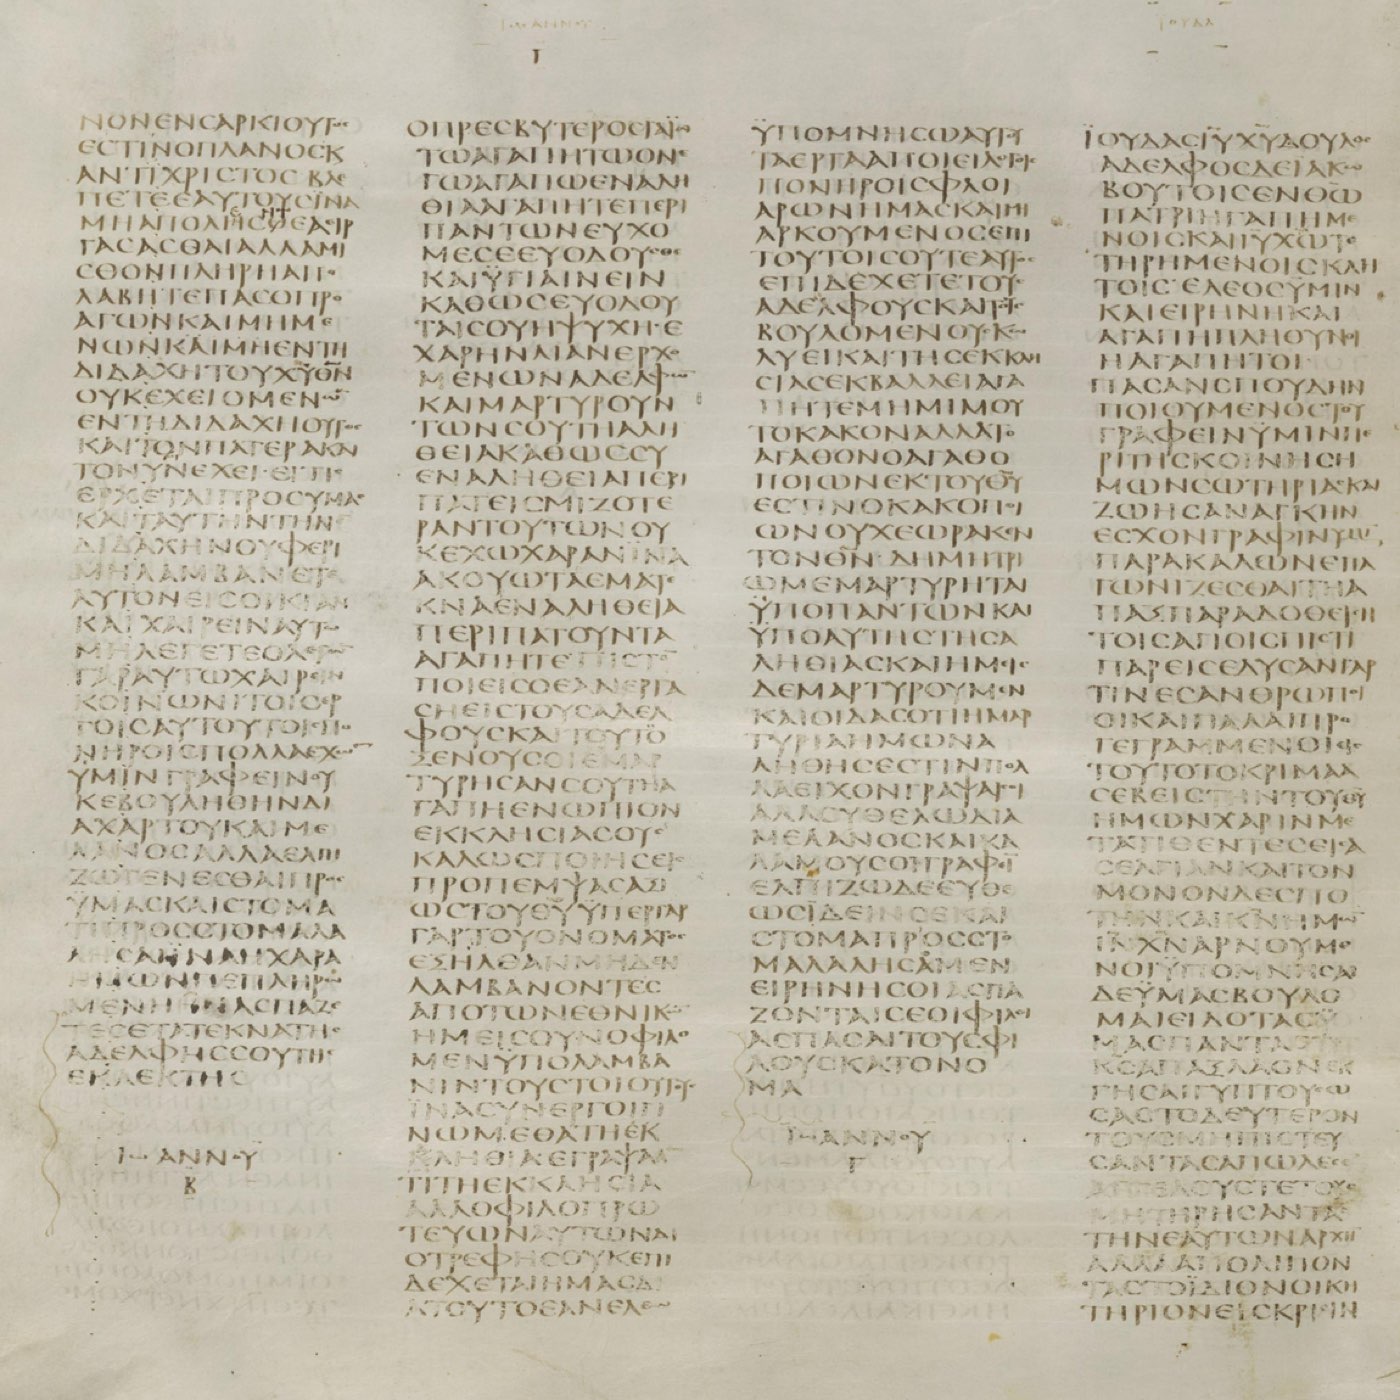 Ιωαννου
Γ
Ϊουδα
ΝΟΝΕΝϹΑΡΚΙΟΥΤΟϹ
ΕϹΤΙΝΟΠΛΑΝΟϹΚ
ΑΝΤΙΧΡΙϹΤΟϹ ΒΛΕ
ΠΕΤΕΕΑΥΤΟΥϹΪΝΑ
ΜΗΑΠΟΛΗϹΘΕΑΕΙΡ
ΓΑϹΑϹΘΑΙΑΛΛΑΜΙ
ϹΘΟΝΠΛΗΡΗΑΠΟ
ΛΑΒΗΤΕΠΑϹΟΠΡΟ
ΑΓΩΝΚΑΙΜΗΜΕ
ΝΩΝΚΑΙΜΗΕΝΤΗ
ΔΙΔΑΧΗΤΟΥΧΥΘΝ
ΟΥΚΕΧΕΙΟΜΕΝΩ
ΕΝΤΗΔΙΔΑΧΗΟΥΤΟϹ
ΚΑΙΤΟΝΠΑΤΕΡΑΚΑΙ
ΤΟΝΥΝΕΧΕΙ·ΕΙΤΙϹ
ΕΡΧΕΤΑΙΠΡΟϹΥΜΑϹ
ΚΑΙΤΑΥΤΗΝΤΗΝ
ΔΙΔΑΧΗΝΟΥΦΕΡΙ
ΜΗΛΑΜΒΑΝΕΤΕ
ΑΥΤΟΝΕΙϹΟΙΚΙΑΝ
ΚΑΙΧΑΙΡΕΙΝΑΥΤΩ
ΜΗΛΕΓΕΤΕΟΛΕΓΩ
ΓΑΡΑΥΤΩΧΑΙΡΕΙΝ
ΚΟΙΝΩΝΙΤΟΙϹΕΡ
ΓΟΙϹΑΥΤΟΥΤΟΙϹΠΟ
ΝΗΡΟΙϹΠΟΛΛΑΕΧΩ
ΥΜΙΝΓΡΑΦΕΙΝΟΥ
ΚΕΒΟΥΛΗΘΗΝΔΙ
ΑΧΑΡΤΟΥΚΑΙΜΕ
ΛΑΝΟϹΑΛΛΑΕΛΠΙ
ΖΩΓΕΝΕϹΘΑΙΠΡΟϹ
ΫΜΑϹΚΑΙϹΤΟΜΑ
ΠΡΟϹϹΤΟΜΑΛΑ
ΛΗϹΑΙΪΝΑΗΧΑΡΑ
ΗΜΩΝΠΕΠΛΗΡΩ
ΜΕΝΗΗΑϹΠΑΖΟ
ΤΕϹΕΤΑΤΕΚΝΑΤΗϹ
ΑΔΕΛΦΗϹϹΟΥΤΗϹ
ΕΚΛΕΚΤΗϹ
ΙΩΑΝΝΟΥ
Β
ΟΠΡΕϹΒΥΤΕΡΟϹΓΑΪΩ
ΤΩΑΓΑΠΗΤΩΟΝΕ
ΓΩΑΓΑΠΩΕΝΑΛΗ
ΘΙΑΑΓΑΠΗΤΕΠΕΡΙ
ΠΑΝΤΩΝΕΥΧΟ
ΜΕϹΕΕΥΟΔΟΥϹΘΕ
ΚΑΙΫΓΙΑΙΝΕΙΝ
ΚΑΘΩϹΕΥΟΔΟΥ
ΤΑΙϹΟΥΗΨΥΧΗ·Ε
ΧΑΡΗΝΛΙΑΝΕΡΧΟ
ΜΕΝΩΝΑΔΕΛΦΩ
ΚΑΙΜΑΡΤΥΡΟΥΝ
ΤΩΝϹΟΥΤΗΑΛΗ
ΘΕΙΑΚΑΘΩϹϹΥ
ΕΝΑΛΗΘΕΙΑΠΕΡΙ
ΠΑΤΕΙϹΜΙΖΟΤΕ
ΡΑΝΤΟΥΤΩΝΟΥ
ΚΕΧΩΧΑΡΑΝΪΝΑ
ΑΚΟΥΩΤΑΕΜΑΤΕ
ΚΝΑΕΝΑΛΗΘΕΙΑ
ΠΕΡΙΠΑΤΟΥΝΤΑ
ΑΓΑΠΗΤΕΠΙϹΤΟ
ΠΟΙΕΙϹΟΕΑΝΕΡΓΑ
ϹΗΕΙϹΤΟΥϹΑΔΕΛ
ΦΟΥϹΚΑΙΤΟΥΤΟ
ΞΕΝΟΥϹΟΙΕΜΑΡ
ΤΥΡΗϹΑΝϹΟΥΤΗΑ
ΓΑΠΗΕΝΩΠΙΟΝ
ΕΚΚΛΗϹΙΑϹΟΥϹ
ΚΑΛΩϹΠΟΙΗϹΕΙϹ
ΠΡΟΠΕΜΨΑϹΑΞΙ
ΩϹΤΟΥΘΥΫΠΕΡΓΑΡ
ΓΑΡΤΟΥΟΝΟΜΑΤΟϹ
ΕΞΗΛΘΑΝΜΗΔΕΝ
ΛΑΜΒΑΝΟΝΤΕϹ
ΑΠΟΤΩΝΕΘΝΙΚΩ
ΗΜΕΙϹΟΥΝΟΦΙΛΟ
ΜΕΝΫΠΟΛΑΜΒΑ
ΝΙΝΤΟΥϹΤΟΙΟΥΤΟΥϹ
ΪΝΑϹΥΝΕΡΓΟΙΓΙ
ΝΩΜΕΘΑΤΗΕΚ
ΚΛΗΘΙΑΕΓΡΑΨΑΜ
ΤΙΤΗΕΚΚΛΗϹΙΑ
ΑΛΛΟΦΙΛΟΠΡΩ
ΤΕΥΩΝΑΥΤΩΝΔΙ
ΟΤΡΕΦΗϹΟΥΚΕΠΙ
ΔΕΧΕΤΑΙΗΜΑϹΔΙ
ΑΤΟΥΤΟΕΑΝΕΛΘΩ
ΫΠΟΜΝΗϹΩΑΥΤΟΥ
ΤΑΕΡΓΑΑΠΟΙΕΙΛΟΓΟΙϹ
ΠΟΝΗΡΟΙϹΦΛΟΙ
ΑΡΩΝΗΜΑϹΚΑΙΜΗ
ΑΡΚΟΥΜΕΝΟϹΕΠΙ
ΤΟΥΤΟΙϹΟΥΤΕΑΥΤΟϹ
ΕΠΙΔΕΧΕΤΕΤΟΥϹ
ΑΔΕΛΦΟΥϹΚΑΙΤΟΥϹ
ΒΟΥΛΟΜΕΝΟΥϹΚΩ
ΛΥΕΙΚΑΙΤΗϹΕΚΚΛΗ
ϹΙΑϹΕΚΒΑΛΛΕΙΑΓΑ
ΠΗΤΕΜΗΜΙΜΟΥ
ΤΟΚΑΚΟΝΑΛΛΑΤΟ
ΑΓΑΘΟΝΟΑΓΑΘΟ
ΠΟΙΩΝΕΚΤΟΥΘΥ
ΕϹΤΙΝΟΚΑΚΟΠΟΙ
ΩΝΟΥΧΕΩΡΑΚΕΝ
ΤΟΝΘΝ·ΔΗΜΗΤΡΙ
ΩΜΕΜΑΡΤΥΡΗΤΑΙ
ΫΠΟΠΑΝΤΩΝΚΑΙ
ΥΠΟΑΥΤΗϹΤΗϹΑ
ΛΗΘΙΑϹΚΑΙΗΜΕΙϹ
ΔΕΜΑΡΤΥΡΟΥΜΕΝ
ΚΑΙΟΙΔΑϹΟΤΙΗΜΑΡ
ΤΥΡΙΑΗΜΩΝΑ
ΛΗΘΗϹΕϹΤΙΝΠΟΛ
ΛΑΕΙΧΟΝΓΡΑΨΑΙϹΟΙ
ΑΛΛΟΥΘΕΛΩΔΙΑ
ΜΕΛΑΝΟϹΚΑΙΚΑ
ΛΑΜΟΥϹΟΙΓΡΑΦΙ
ΕΛΠΙΖΩΔΕΕΥΘΕ
ΩϹΪΔΕΙΝϹΕΚΑΙ
ϹΤΟΜΑΠΡΟϹϹΤΟ
ΜΑΛΑΛΗϹΟΜΕΝ
ΕΙΡΗΝΗϹΟΙΑϹΠΑ
ΖΟΝΤΑΙϹΕΟΙΦΙΛΟΙ
ΑϹΠΑϹΑΙΤΟΥϹΦΙ
ΛΟΥϹΚΑΤΟΝΟ
ΜΑ
ΙΩΑΝΝΟΥ
Γ
ΪΟΥΔΑϹΙΥΧΥΔΟΥΛΟϹ
ΑΔΕΛΦΟϹΔΕΪΑΚΩ
ΒΟΥΤΟΙϹΕΝΘΩ
ΠΑΤΡΙΗΓΑΠΗΜΕ
ΝΟΙϹΚΑΙΙΥΧΩΤΕ
ΤΗΡΗΜΕΝΟΙϹΚΛΗ
ΤΟΙϹ·ΕΛΕΟϹΥΜΙΝ
ΚΑΙΕΙΡΗΝΗΚΑΙ
ΑΓΑΠΗΠΛΗΘΥΝΘΙ
ΗΑΓΑΠΗΤΟΙ
ΠΑϹΑΝϹΠΟΥΔΗΝ
ΠΟΙΟΥΜΕΝΟϹΤΟΥ
ΓΡΑΦΕΙΝΫΜΙΝΠΕ
ΡΙΤΗϹΚΟΙΝΗϹΗ
ΜΩΝϹΩΤΗΡΙΑϹΚΑΙ
ΖΩΗϹΑΝΑΓΚΗΝ
ΕϹΧΟΝΓΡΑΦΙΝΥΜΙ
ΠΑΡΑΚΑΛΩΝΕΠΑ
ΓΩΝΙΖΕϹΘΑΙΤΗΑ
ΠΑΞΠΑΡΑΔΟΘΕΙϹΗ
ΤΟΙϹΑΓΙΟΙϹΠΙϹΤΙ
ΠΑΡΕΙϹΕΔΥϹΑΝΓΑΡ
ΤΙΝΕϹΑΝΘΡΩΠΟΙ
ΟΙΚΑΙΠΑΛΑΙΠΡΟ
ΓΕΓΡΑΜΜΕΝΟΙΕΙϹ
ΤΟΥΤΟΤΟΚΡΙΜΑΑ
ϹΕΒΕΙϹΤΗΝΤΟΥΘΥ
ΗΜΩΝΧΑΡΙΝΜΕ
ΤΑΤΙΘΕΝΤΕϹΕΙϹΑ
ϹΕΛΓΙΑΝΚΑΙΤΟΝ
ΜΟΝΟΝΔΕϹΠΟ
ΤΗΝΚΑΙΚΝΗΜΩ
ΙΝΧΝΑΡΝΟΥΜΕ
ΝΟΙΫΠΟΜΝΗϹΑΙ
ΔΕΫΜΑϹΒΟΥΛΟ
ΜΑΙΕΙΔΟΤΑϹΫ
ΜΑϹΠΑΝΤΑΟΤΙ
ΚϹΑΠΑΞΛΑΟΝΕΚ
ΓΗϹΑΙΓΥΠΤΟΥϹΩ
ϹΑϹΤΟΔΕΥΤΕΡΟΝ
ΤΟΥϹΜΗΠΙϹΤΕΥ
ϹΑΝΤΑϹΑΠΩΛΕϹΕ
ΑΓΓΕΛΟΥϹΤΕΤΟΥϹ
ΜΗΤΗΡΗϹΑΝΤΑϹ
ΤΗΝΕΑΥΤΩΝΑΡΧΗ
ΑΛΛΑΑΠΟΛΙΠΟΝ
ΤΑϹΤΟΪΔΙΟΝΟΙΚΗ
ΤΗΡΙΟΝΕΙϹΚΡΙϹΙΝ